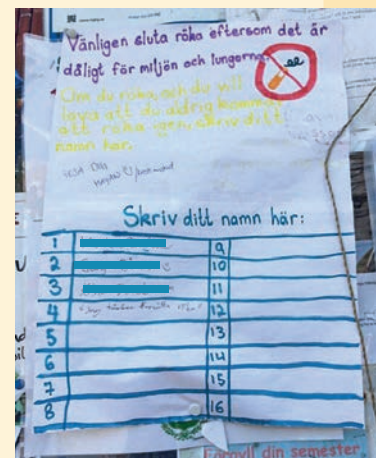 Vänligen sluta röka eftersom det är
dåligt för miljön och lungorna.
Om du röka, och du vill
lova att du aldrig kommer
att röka igen, skriv ditt
namn här.
Skriv ditt namn här:
1 9
2 10
3 11
4 12
5 13
6 14
7 15
8 16
din semester